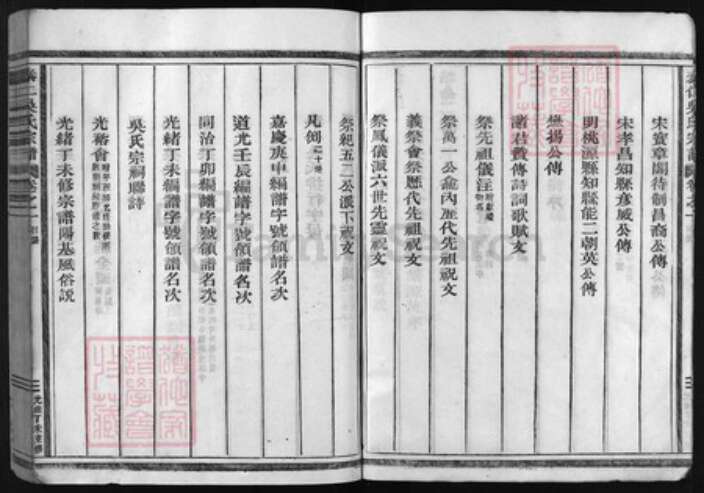 宋寶章閣待制昌裔公傳
宋孝昌知縣彥威公傳
明桃源縣知縣能二朝英公傳
懋揚公傳
諸君贊傳詩詞歌賦文
祭先祖儀注
祭萬一公龕內歷代先祖祝文
義祭會祭歷代先祖祝文
祭鳳儀派六世先靈祝文
祭紀五二公派下祝文
凡例
嘉慶庚申編譜字號領譜名次
道光壬辰編譜字號領譜名次
同治丁卯編譜字號領譜名次
光緒丁未編譜字號領譜名次
吳氏宗祠聯詩
光裕會
光緒丁未修宗譜陽基風俗說
吳氏宗譜
光緒丁未重修